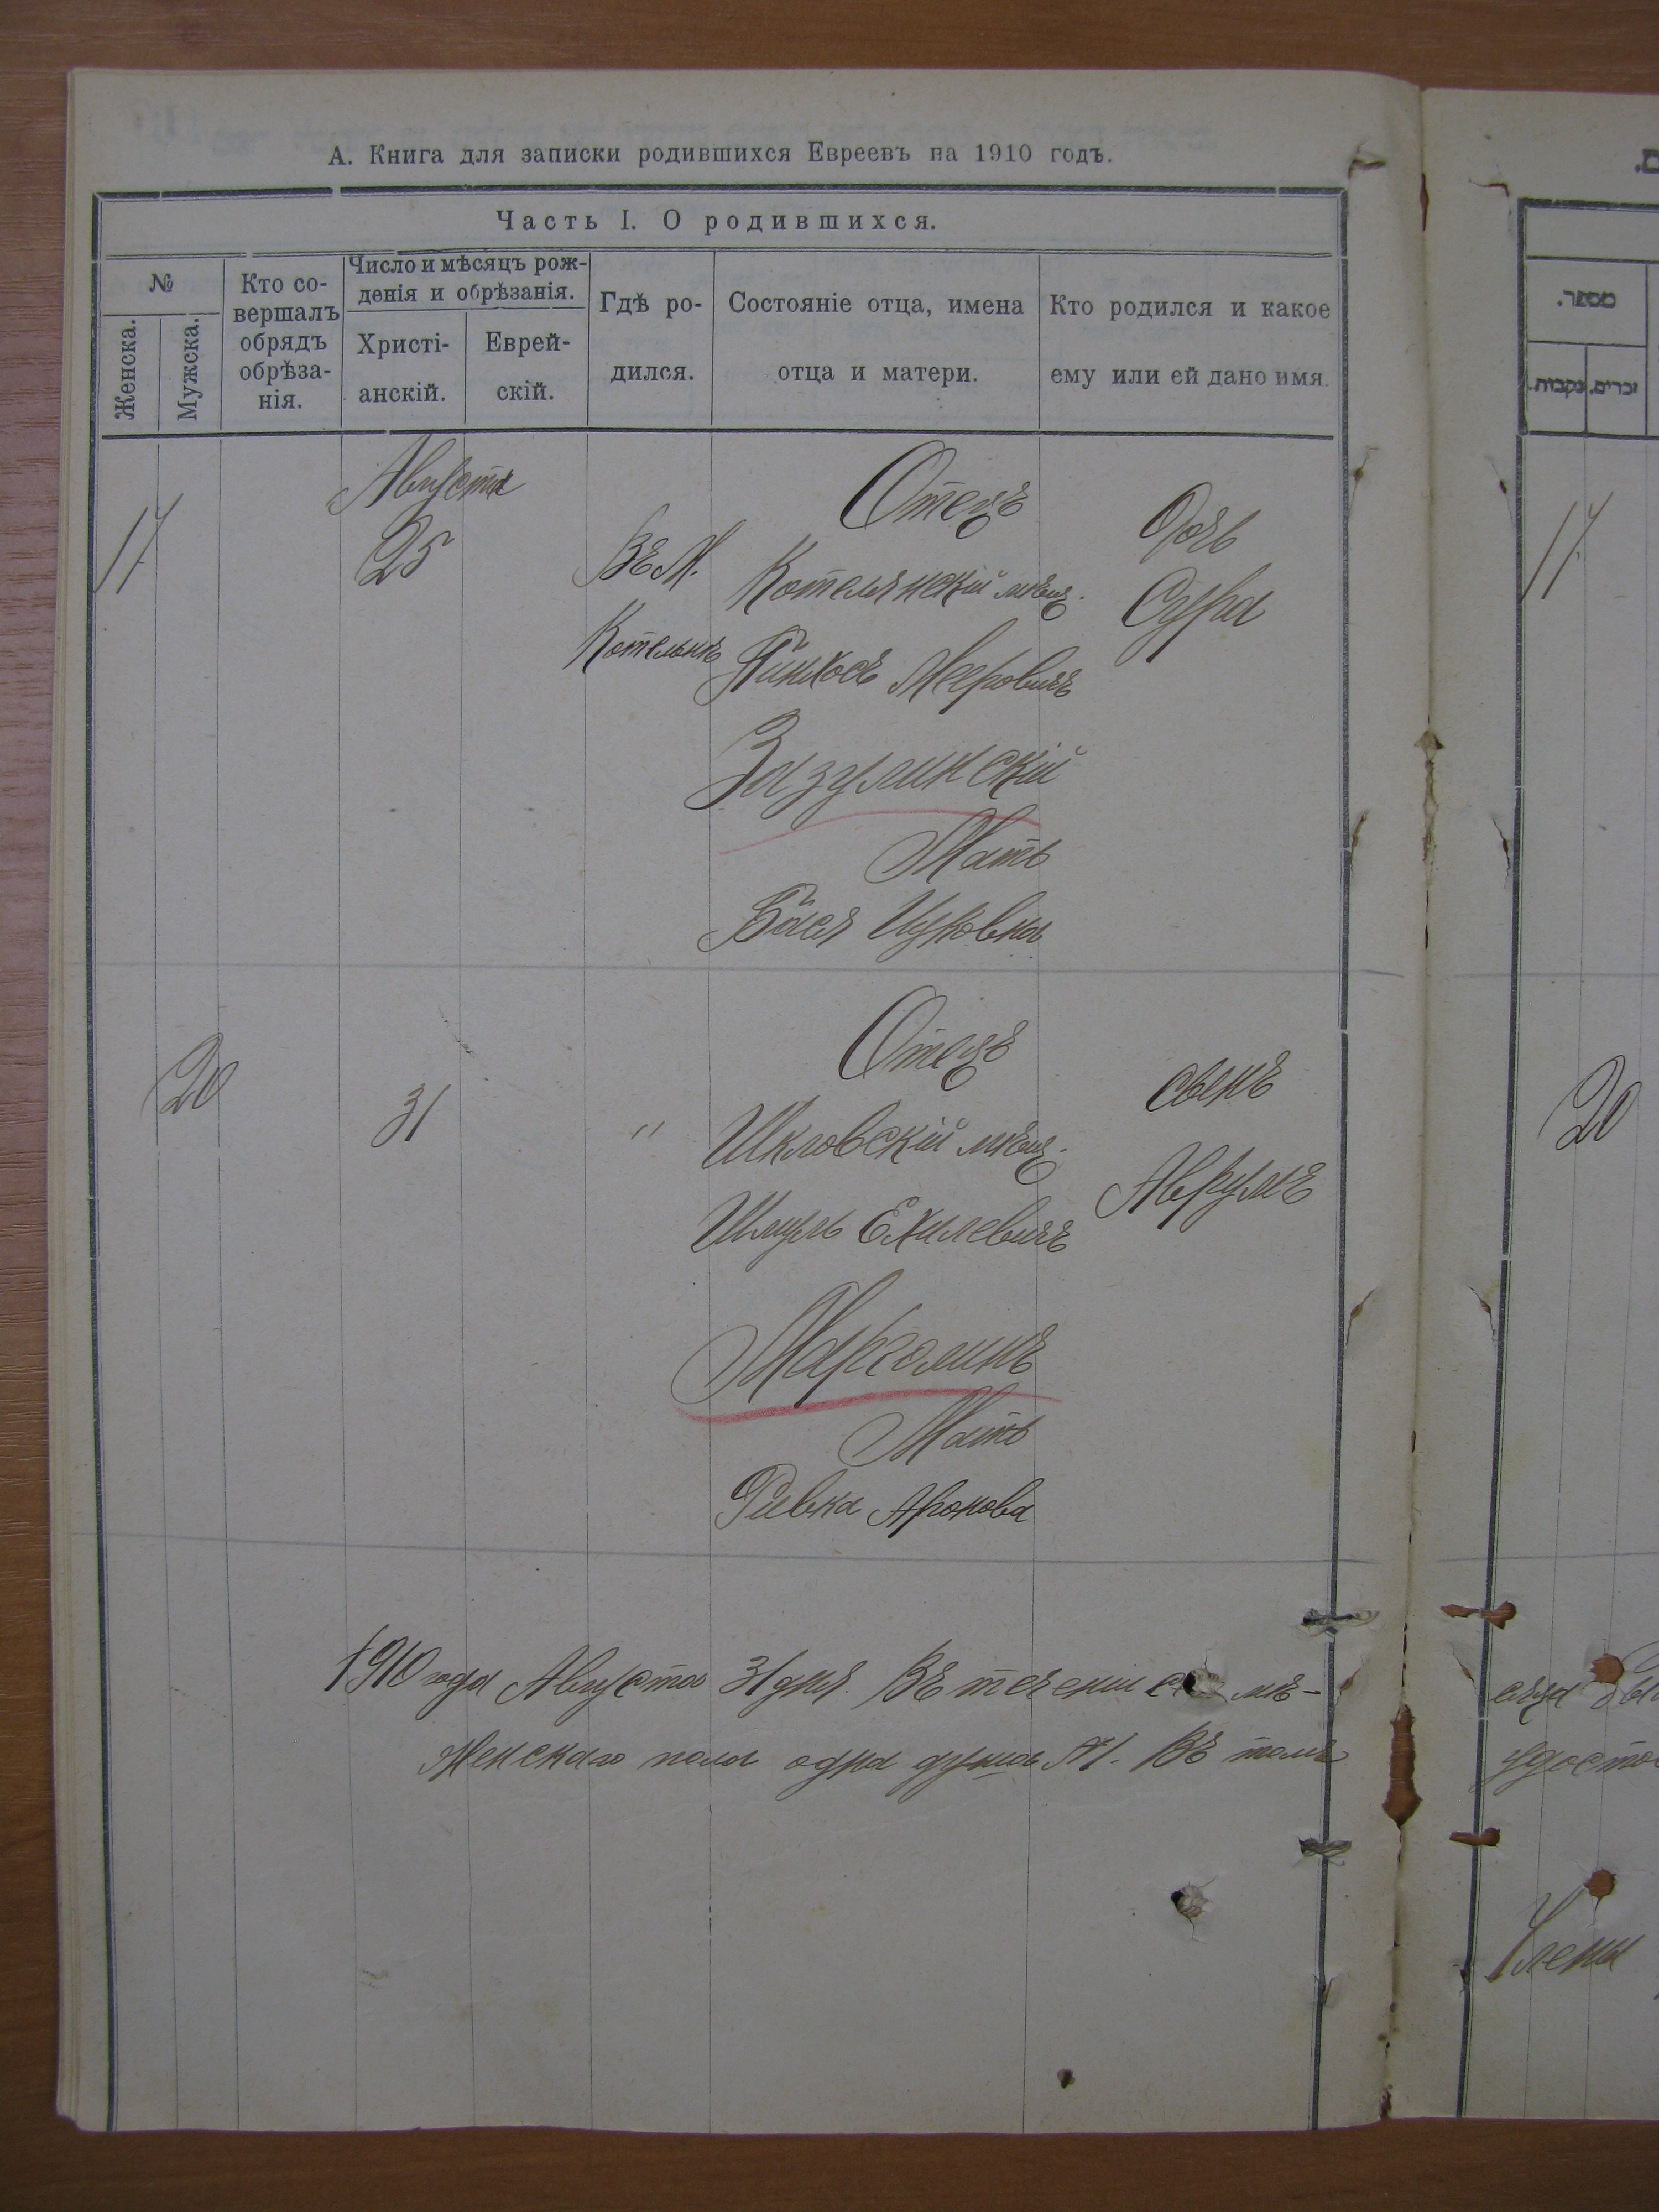 А. Книга для записки родившихся Евреевъ на 1910 годъ.
Часть I. О родившихся.
№
Женска.
Мужска.
Кто со-
вершалъ
обрядъ
обрѣза-
нія.
Число и мѣсяцъ рож-
денія и обрѣзанія.
Христі-
анскій.
Еврей-
скій.
Гдѣ ро-
дился.
Состояніе отца, имена
отца и матери.
Кто родился и какое
ему или ей дано имя.
17
Августа
25
Въ М.
Котельнѣ
Отецъ
Котелянскій мѣщ.
Пинхосъ Мееровичъ
Зазулинскій
Мать
Бася Ицковна
Дочь
Сура
20
31
"
Отецъ
Шкловскій мѣщ.
Шмуль Ехилевичъ
Марголинъ
Мать
Ривка Аронова
сынъ
Аврумъ
1910 года Августа 31 дня. Въ теченіи мѣ-
Женскаго пола одна душа №1. Въ томъ
מספר.
זכרים.
נקבות.
17
20
сяца
удосто
Члены